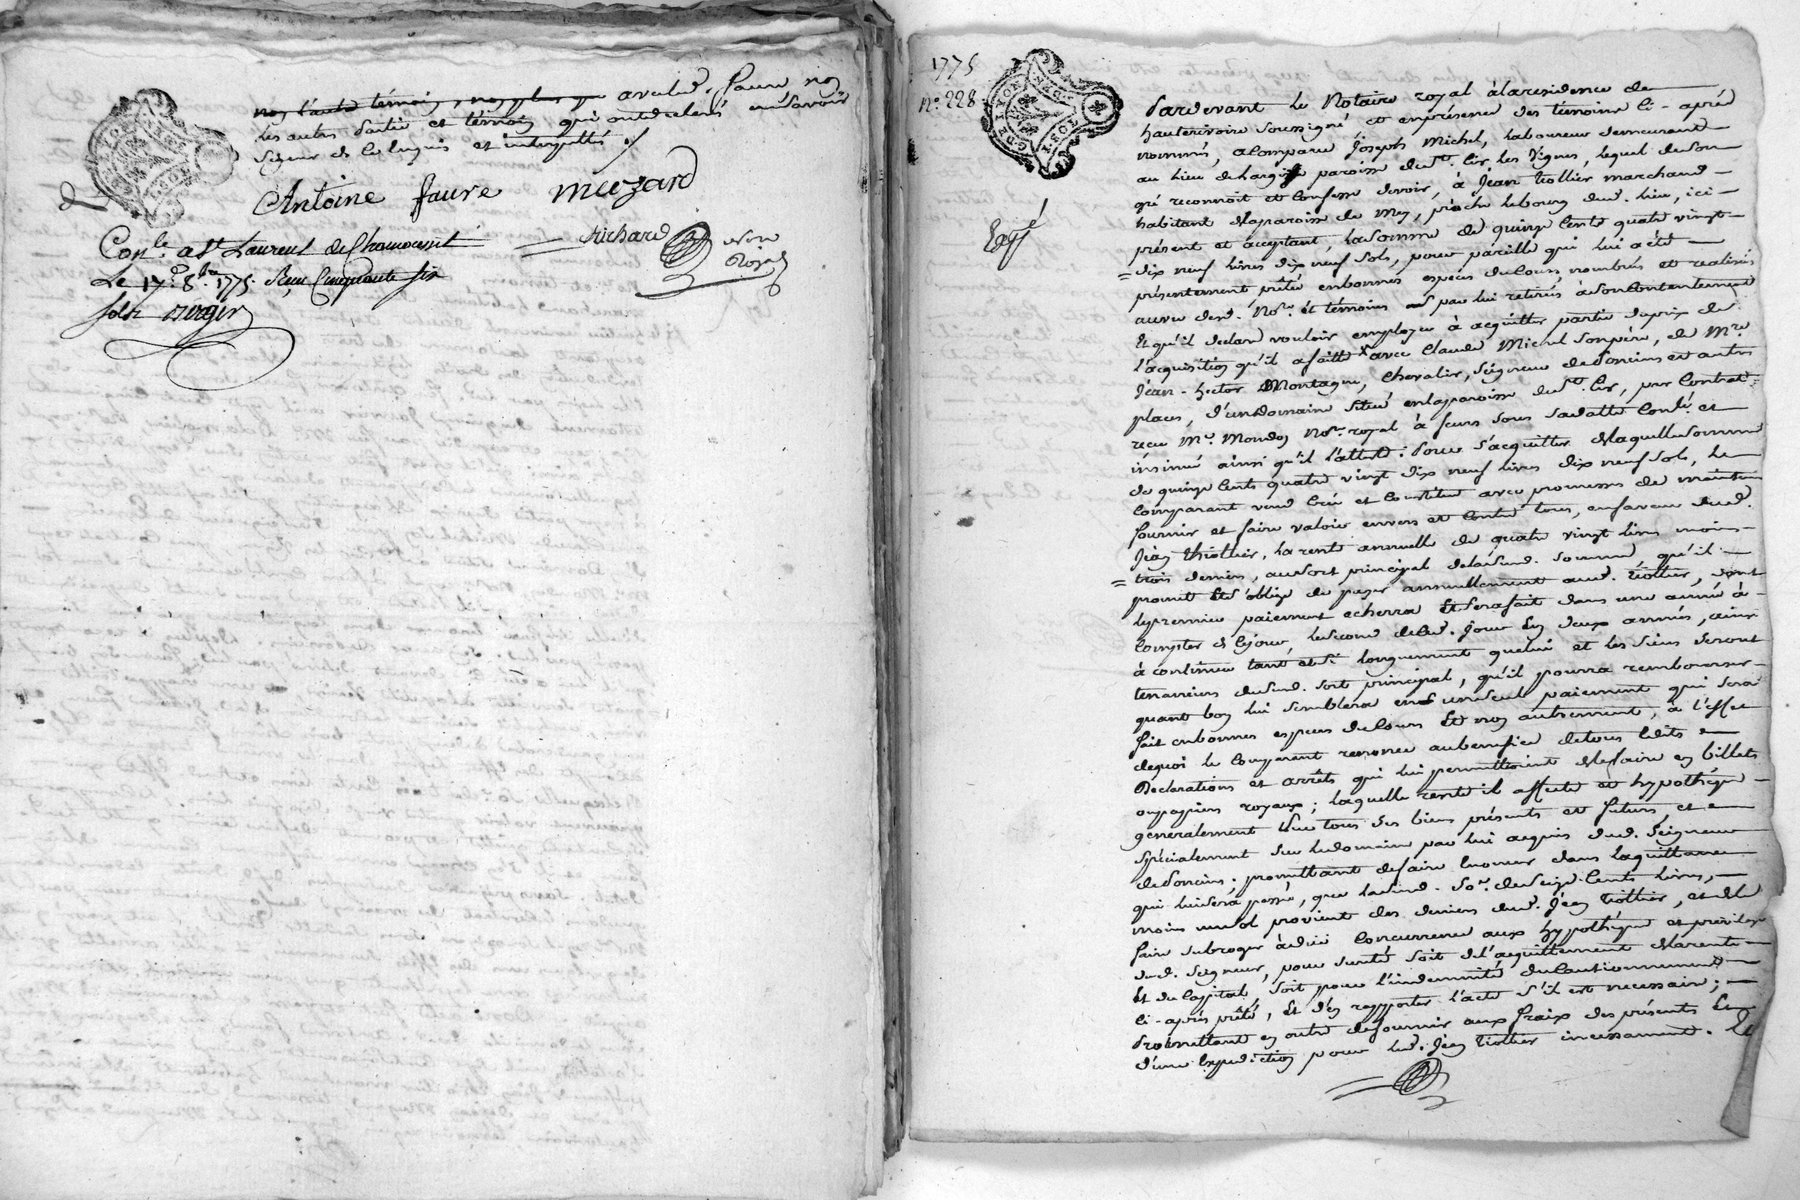 avec led. faure non
les autres partie et témoin qui ont declaré ne savoir
signer de ce enquis et interpellés ./.
Antoine faure muzard
Richard
Con.le a St Laurent de Chamousset
Le 17.e 8.bre 1775. Reçu Cinquante six
sols
Not.re
Royal
1775
N.o 228
Expé
Pardevant Le Notaire royal à la residence de
hauterivoire soussigné et en présence des témoins ci-après
nommés, a Comparu Joseph Michel, laboureur demeurant
au lieu de paroisse de St. Cir les Vignes, lequel de son
gré reconnoit et confesse devoir, à Jean tiollier marchand
habitant de la paroisse de Mey, proche le bourg dud. lieu, ici
présent et acceptant, la somme de quinze Cents quatre vingt
dix neuf livres dix neuf sols, pour pareille qui lui a été
présentement prêtée en bonnes especes du Cours, nombrées et realisées
au vu desd. No.re et témoins et par lui retirées à son Contentement
Et qu'il declare vouloir employer à acquitter partie du prix de
l'acquisition qu'il a faitte avec Claude Michel son père, de M.re
Jean-hector Montagne, Chevalier, seigneur de Poncins et autres
places, d'un domaine situé en la paroisse de St. Cir, par Contrat
reçu M.e Mondon No.re royal à feurs sous sa datte Conlé. et
insinué ainsi qu'il l'atteste: Pour s'acquitter de laquelle somme
de quinze Cents quatre vingt dix neuf livres dix neuf sols, Le
Comparant vend Crée et Constitue avec promesses de maintenir
fournir et faire valoir envers et Contre tous, en faveur dud.
Jean thiollier, la rente annuelle de quatre vingt livres moins
trois deniers, au sort principal de la susd. somme qu'il
promet Et s'oblige de payer annuellement aud. tiollier, dont
le premier paiement echerra Et sera fait dans une année à
Compter de ce jour, le second de ced. jour En deux années, ainsi
à continuer tant et si longuement que lui et les siens seront
tenanciers du susd. sort principal, qu'il pourra rembourser
quant bon lui semblera en un seul paiement qui sera
fait en bonnes especes du Cours Et non autrement, à l'effet
de quoi le Comparant renonce au benefice de tous Edits
Déclarations et arrêts qui lui permettroient de le faire en billets
ou papiers royaux; laquelle rente il affecte et hypothéque
generalement sur tous ses biens présents et futurs, et
spécialement sur le domaine par lui acquis dud. seigneur
de Poncins; promettant de faire énoncer dans la quittance
qui lui sera passée, que la susd. so.e de seize Cents livres,
moins un sol provient des deniers dud. Jean tiollier, et de le
faire subroger à dûe Concurrence aux hypothéque et privilege
dud. seigneur, pour sureté soit de l'acquittement de la rente
Et du Capital, soit pour l'indemnité du Cautionnement
Ci-après prêté, Et d'en rapporter l'acte s'il est necessaire;
Promettant en outre de fournir aux fraix des présentes Et
d'une Expedition pour led. Jean tiollier incessament. Et